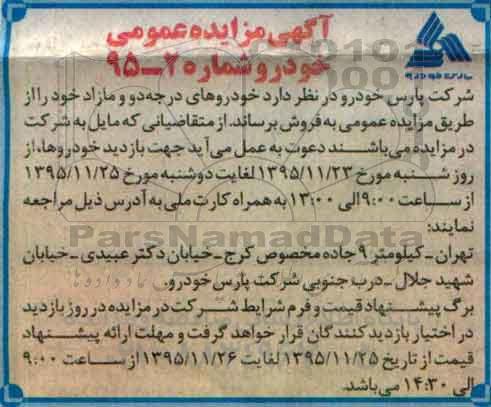 آگهی مزایده عمومی
خودرو شماره ۲-۹۵
شرکت پارس خودرو در نظر دارد خودروهای درجه دو و مازاد خود را از
طریق مزایده عمومی به فروش برساند. از متقاضیانی که مایل به شرکت
در مزایده می باشند دعوت به عمل می آید جهت بازدید خودروها، از
روز شنبه مورخ ۱۳۹۵/۱۱/۲۳ لغایت دوشنبه مورخ ۱۳۹۵/۱۱/۲۵
از ساعت ۹:۰۰ الی ۱۳:۰۰ به همراه کارت ملی به آدرس ذیل مراجعه
نمایند:
ParsNamadData
تهران-کیلومتر ۹ جاده مخصوص کرج-خیابان دکتر عبیدی-خیابان
شهید جلال-درب جنوبی شرکت پارس خودرو.
برگ پیشنهاد قیمت و فرم شرایط شرکت در مزایده در روز بازدید
در اختیار بازدید کنندگان قرار خواهد گرفت و مهلت ارائه پیشنهاد
قیمت از تاریخ ۱۳۹۵/۱۱/۲۵ لغایت ۱۳۹۵/۱۱/۲۶ از ساعت ۹:۰۰
الی ۱۴:۳۰ می باشد.